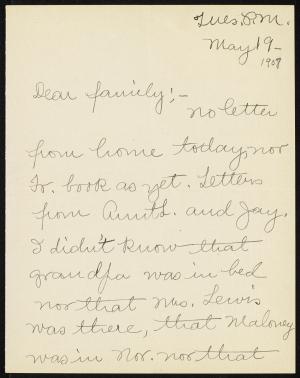 Tues. P.M.
May 19-
1908
Dear family;-
No letter
from home today, nor
Tr. book as yet. Letters
from Aunt L. and Jay.
I didn't know that
grandpa was in bed
nor that Mrs. Lewis
was there, that Maloney
was in Nor. nor that